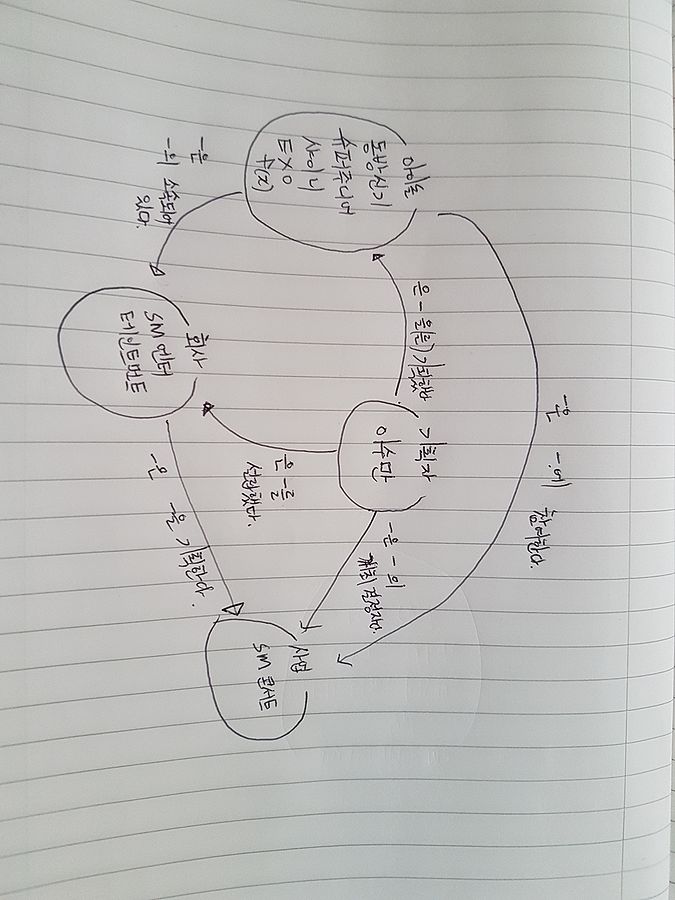 -은 -에 참여한다.
아이돌
동방신기
슈퍼주니어
샤이니
EXO
f(x)
은 - 을(를) 기획했다.
기획자
이수만
-은 -의
개최 결정자다.
-은
-의 소속되어
있다.
은 -를
설립했다.
회사
SM 엔터
테인트먼트
-은 -을 기획한다.
사업
SM 콘서트